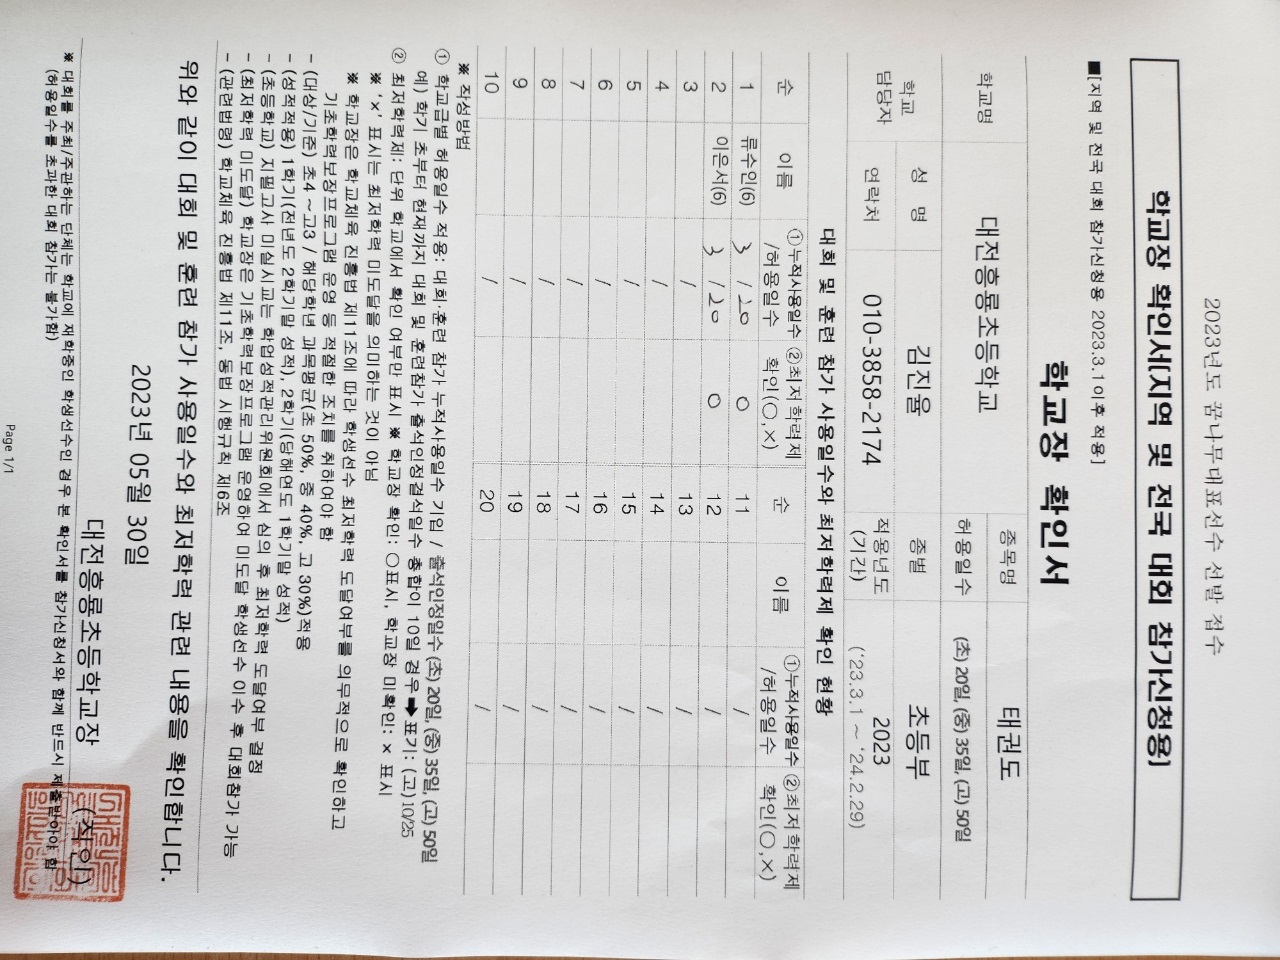 2023년도 꿈나무대표선수 선발 접수
학교장 확인서[지역 및 전국 대회 참가신청용]
■[지역 및 전국 대회 참가신청용 2023.3.1이후 적용]
학교장 확인서
학교명 대전흥룡초등학교 종목명 태권도
허용일수 (초) 20일, (중) 35일, (고) 50일
학교 담당자 성 명 김진율 종별 초등부
연락처 010-3858-2174 적용년도 (기간) 2023 ('23.3.1 ~ '24.2.29)
대회 및 훈련 참가 사용일수와 최저학력제 확인 현황
순 이름 ①누적사용일수 /허용일수 ②최저학력제 확인(○,×) 순 이름 ①누적사용일수 /허용일수 ②최저학력제 확인(○,×)
1 류수인(6) 3 / 20 ○ 11 /
2 이은서(6) 3 / 20 ○ 12 /
3 / 13 /
4 / 14 /
5 / 15 /
6 / 16 /
7 / 17 /
8 / 18 /
9 / 19 /
10 / 20 /
※ 작성방법
① 학교급별 허용일수 적용: 대회·훈련 참가 누적사용일수 기입 / 출석인정일수 (초) 20일, (중) 35일, (고) 50일
예) 학기 초부터 현재까지 대회 및 훈련참가 출석인정결석일수 총합이 10일 경우 ➡ 표기: (고) 10/25
② 최저학력제: 단위 학교에서 확인 여부만 표시 ※ 학교장 확인: ○표시, 학교장 미확인: × 표시
※ '×' 표시는 최저학력 미도달을 의미하는 것이 아님
※ 학교장은 학교체육 진흥법 제11조에 따라 학생선수 최저학력 도달여부를 의무적으로 확인하고
기초학력보장프로그램 운영 등 적절한 조치를 취하여야 함
- (대상/기준) 초4 ~ 고3 / 해당학년 과목평균(초 50%, 중 40%, 고 30%)적용
- (성적적용) 1학기(전년도 2학기말 성적), 2학기(당해연도 1학기말 성적)
- (초등학교) 지필고사 미실시교는 학업성적관리위원회에서 심의 후 최저학력 도달여부 결정
- (최저학력 미도달) 학교장은 기초학력보장프로그램 운영하여 미도달 학생선수 이수 후 대회참가 가능
- (관련법령) 학교체육 진흥법 제11조, 동법 시행규칙 제6조
위와 같이 대회 및 훈련 참가 사용일수와 최저학력 관련 내용을 확인합니다.
2023년 05월 30일
대전흥룡초등학교장 (직인)
※ 대회를 주최/주관하는 단체는 학교에 재학중인 학생선수인 경우 본 확인서를 참가신청서와 함께 반드시 제출받아야 함
(허용일수를 초과한 대회 참가는 불가함)
Page 1/1